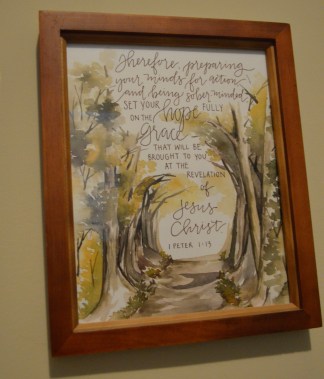 Therefore, preparing
your minds for action,
and being sober minded,
SET YOUR hope FULLY
ON THE
Grace
THAT WILL BE
BROUGHT TO YOU
AT THE
REVELATION
of
Jesus
Christ
1 PETER 1:13